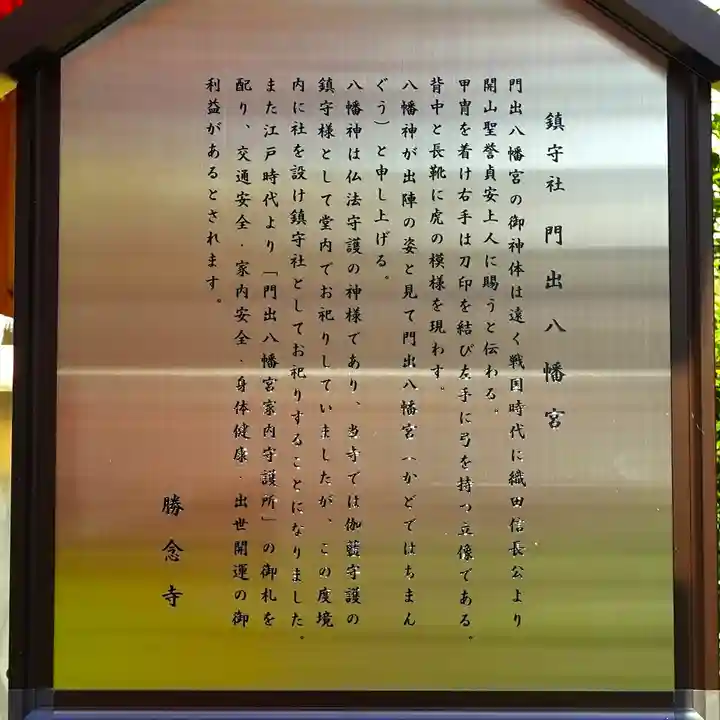 鎮守社 門出八幡宮
門出八幡宮の御神体は遠く戦国時代に織田信長公より
開山聖誉貞安上人に賜うと伝わる。
甲冑を着け右手は刀印を結び左手に弓を持つ立像である。
背中と長靴に虎の模様を現わす。
八幡神が出陣の姿と見て門出八幡宮(かどではちまん
ぐう)と申し上げる。
八幡神は仏法守護の神様であり、当寺では伽藍守護の
鎮守様として堂内でお祀りしていましたが、この度境
内に社を設け鎮守社としてお祀りすることになりました。
また江戸時代より「門出八幡宮家内守護所」の御札を
配り、交通安全・家内安全・身体健康・出世開運の御
利益があるとされます。
勝念寺